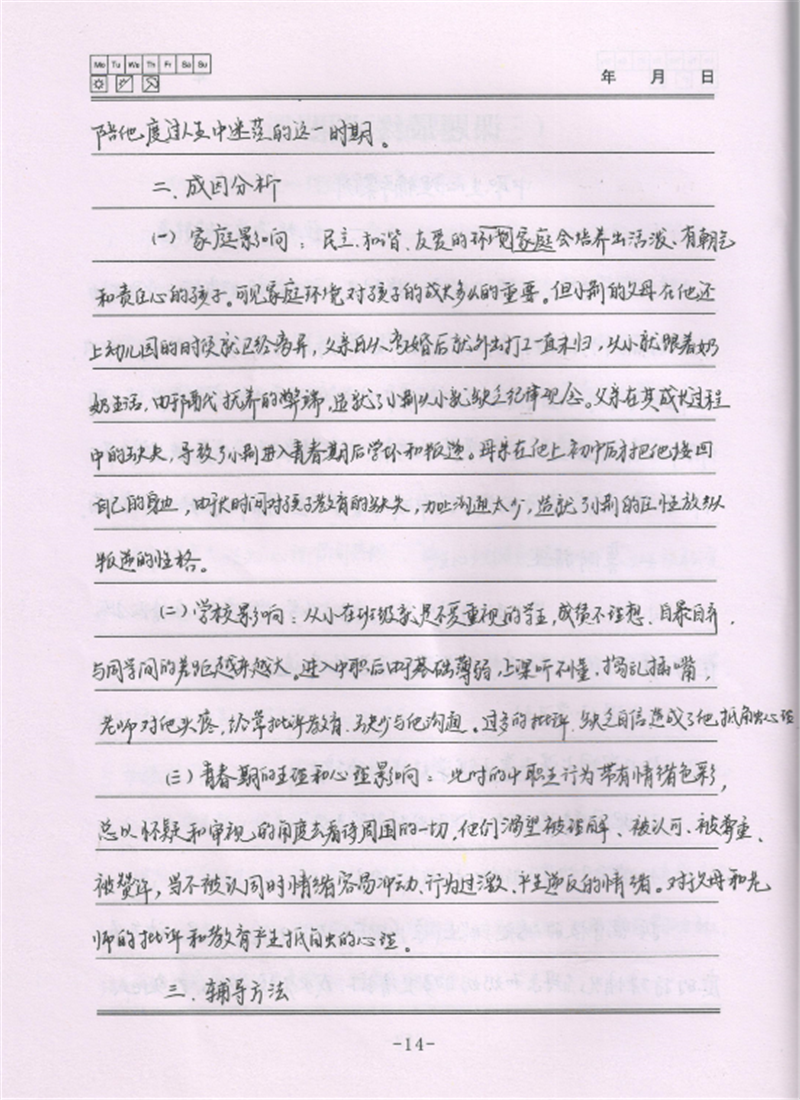 Mo Tu We Th Fr Sa Su
年 月 日
陪他度过人生中迷茫的这一时期。
二、成因分析
(一) 家庭影响：民主、和谐、友爱的环境家庭会培养出活泼、有朝气
和责任心的孩子。可见家庭环境对孩子的成长多么的重要。但小荆的父母在他还
上幼儿园的时候就已经离异，父亲自从离婚后就外出打工一直未归，从小就跟着奶
奶生活，由于隔代抚养的弊端，造就了小荆从小就缺乏纪律观念。父亲在其成长过程
中的缺失，导致了小荆进入青春期后学坏和叛逆。母亲在他上初中后才把他接回
自己的身边，由于长时间对孩子教育的缺失，加上沟通太少，造就了小荆的任性放纵
叛逆的性格。
(二) 学校影响：从小在班级就是不受重视的学生，成绩不理想、自暴自弃，
与同学间的差距越来越大。进入中职后由于基础薄弱，上课听不懂、捣乱插嘴，
老师对他头疼，经常批评教育、缺少与他沟通。过多的批评、缺乏自信造成了他抵触心理
(三) 青春期的生理和心理影响：此时的中职生行为带有情绪色彩，
总以怀疑和审视的角度去看待周围的一切，他们渴望被理解、被认可、被尊重、
被赞许，当不被认同时情绪容易冲动、行为过激、产生逆反的情绪。对父母和老
师的批评和教育产生抵触的心理。
三、辅导方法
-14-